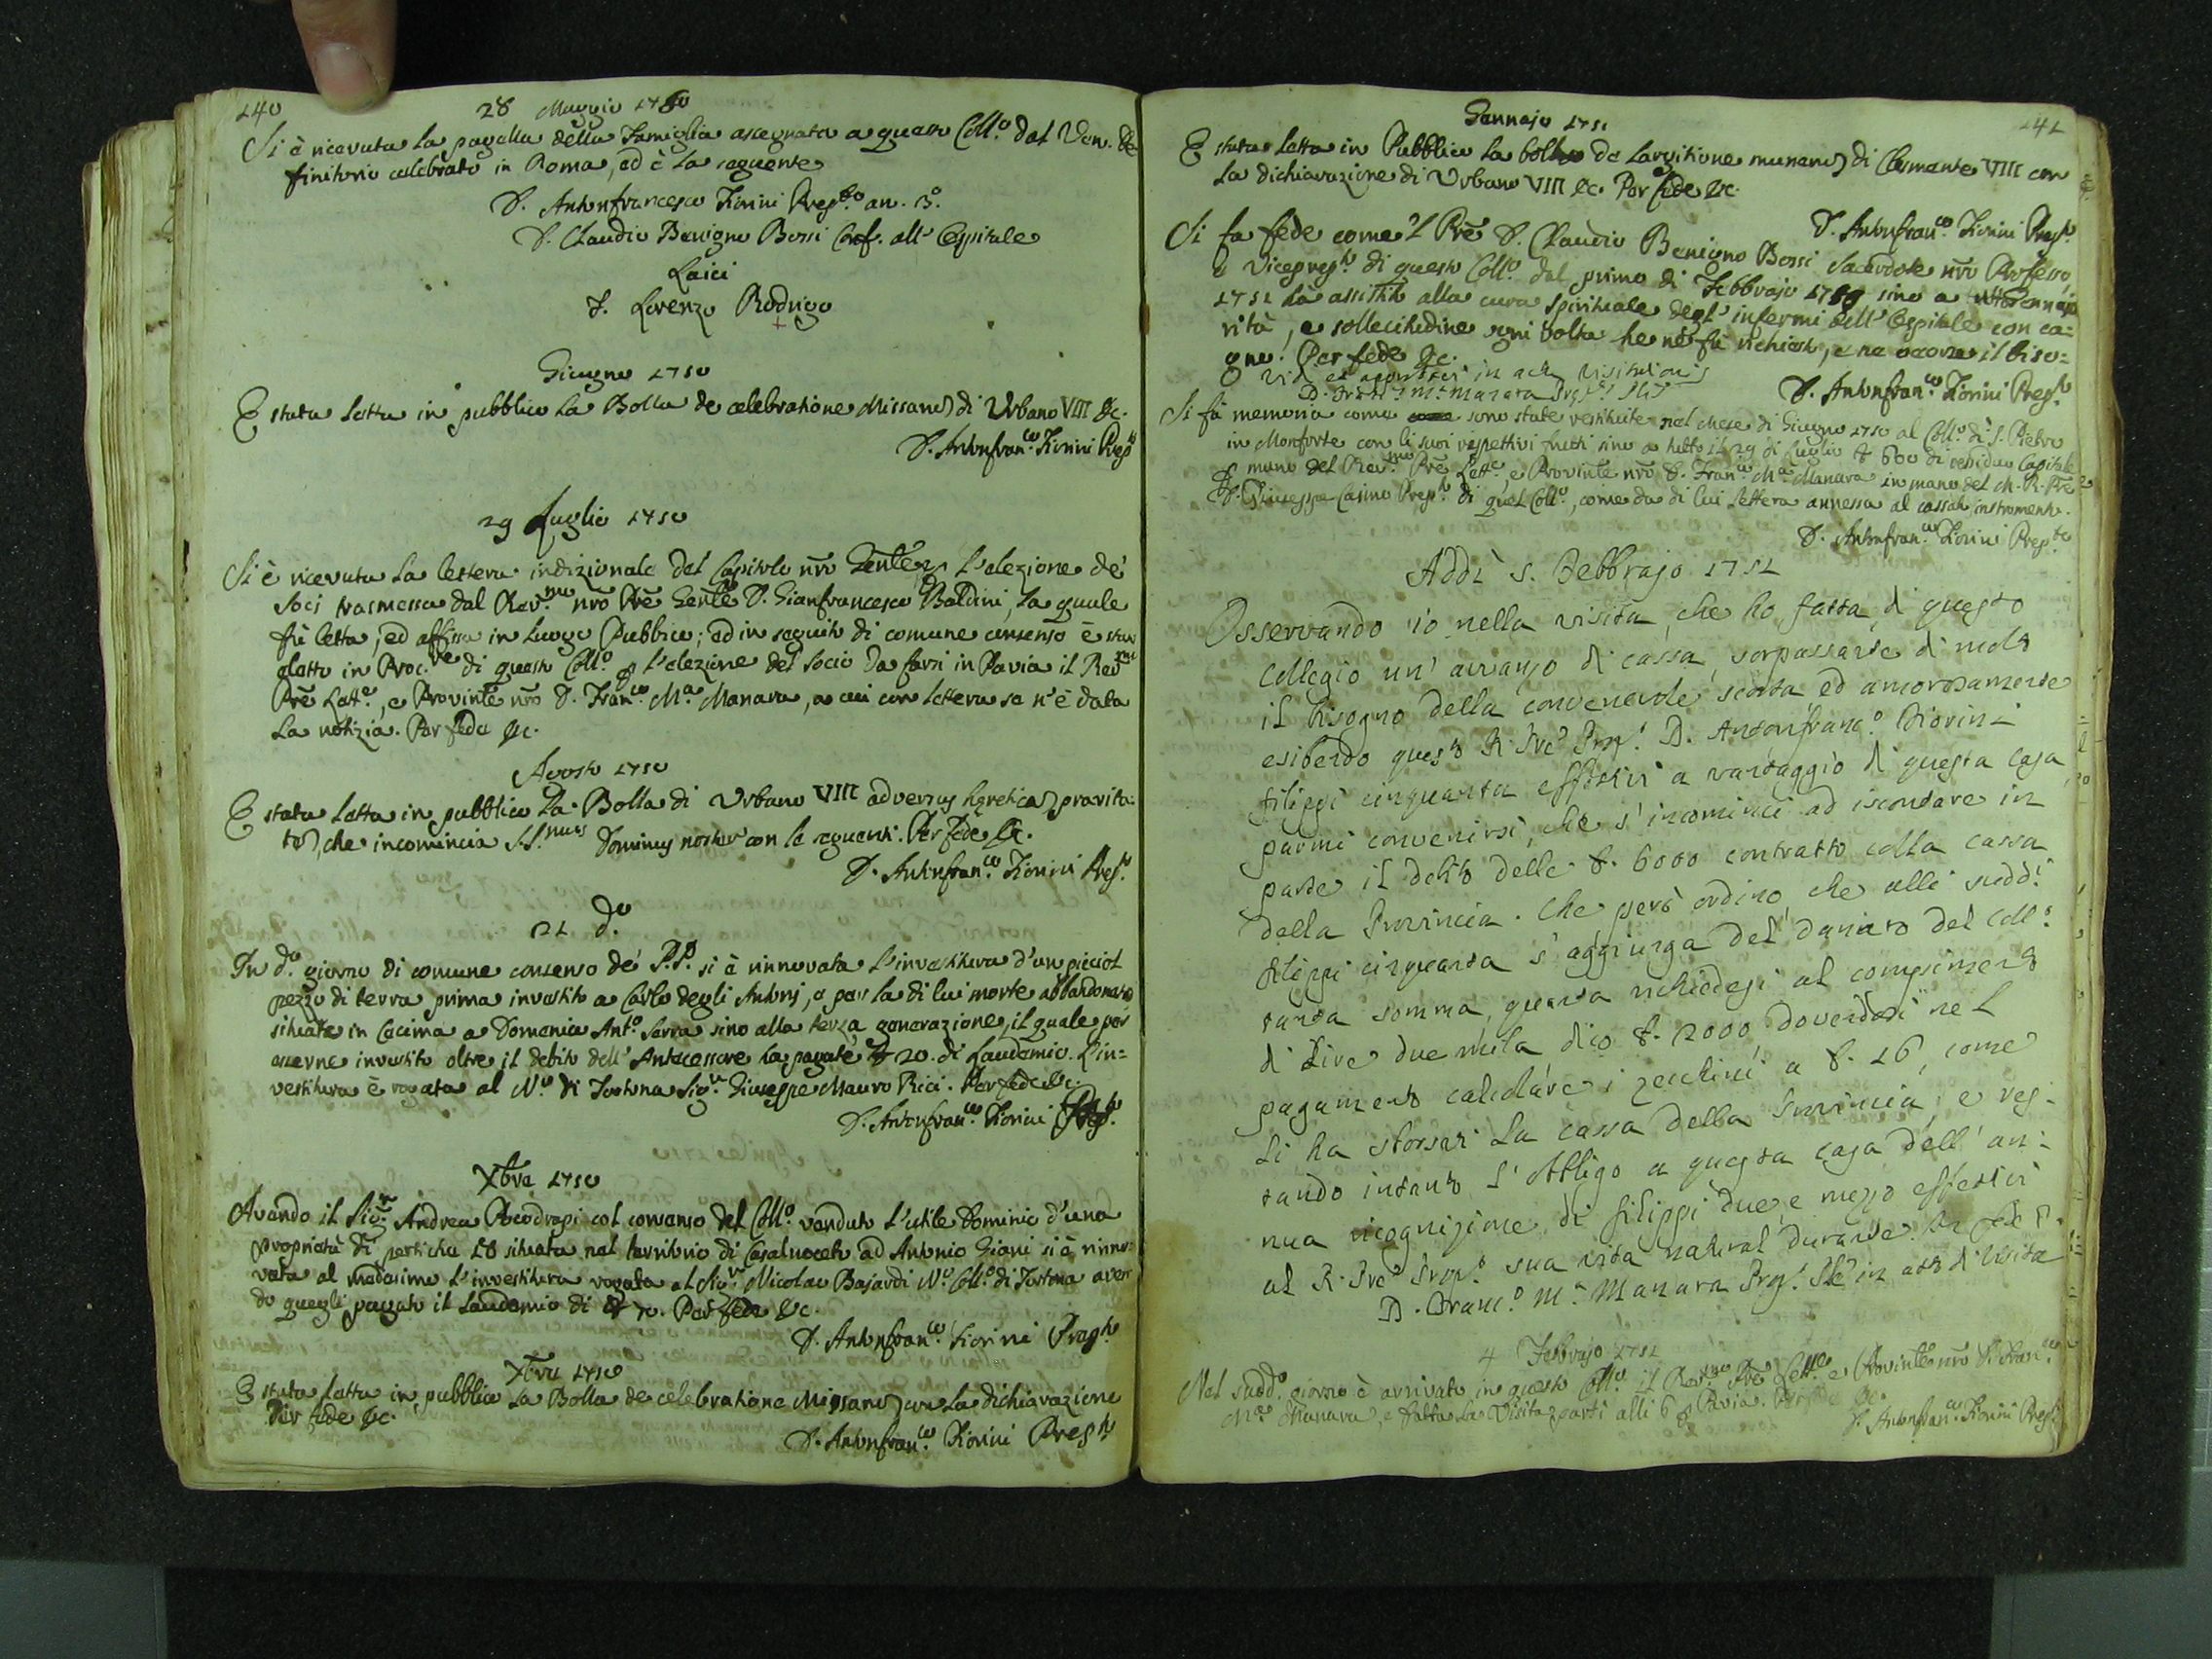 140
28 Maggio 1750
Si è ricevuta la pagella della Famiglia assegnata a questo Coll.o dal Ven. De
finitorio celebrato in Roma, ed è la seguente
D. Antonfrancesco Fiorini Prep.to an. 3.o
D. Claudio Benigno Bossi Conf. all' Ospitale
Laici
F. Lorenzo Rodrigo
Giugno 1750
È stata letta in pubblico la Bolla de celebratione Missarum di Urbano VIII &c.
D. Antonfran.co Fiorini Prep.to
29 Luglio 1750
Si è ricevuta la lettera indizionale del Capitolo nrō Genle per l'elezione de'
Soci trasmessa dal Rev.mo nrō Prē Genle D. Gianfrancesco Baldini, la quale
fù letta, ed affissa in luogo Pubblico; ed in seguito di comune consenso è stato
eletto in Proc.re di questo Coll.o per l'elezione del Socio da farsi in Pavia il Rev.mo
Prē Lett.e, e Provinle nrō D. Fran.co M.a Manara, a cui con lettera se n'è data
la notizia. Per fede &c.
Agosto 1750
È stata letta in pubblico la Bolla di Urbano VIII adversus hæreticam pravita-
tem, che incomincia SS.mus Dominus noster con le seguenti. Per fede &c.
D. Antonfran.co Fiorini Prep.to
21 d.o
In d.o giorno di comune consenso de' P.P. si è rinnovata l'investitura d'un picciol
pezzo di terra prima investito a Carlo degli Antonj, e per la di lui morte abbandonato
situato in Cecima a Domenico Ant.o Serra sino alla terza generazione, il quale per
esserne investito oltre il debito dell' Antecessore ha pagate 20. di Laudemio. L'in-
vestitura è rogata al N.o di Tortona Sig.r Giuseppe Mauro Ricci. Per fede &c.
D. Antonfran.co Fiorini Prep.to
Xbre 1750
Avendo il Sig.r Andrea Pecodrapi col consenso del Coll.o venduto l'utile Dominio d'una
proprietà di pertiche 18 situata nel territorio di Casalnoceto ad Antonio Giani si è rinno-
vata al medesimo l'investitura rogata al Sig.r Nicolao Bajardi N.o Coll.o di Tortona aven
do quegli pagato il laudemio di 70. Per fede &c.
D. Antonfran.co Fiorini Prep.to
Xbre 1750
È stata letta in pubblico la Bolla de celebratione Missarum con la dichiarazione
Per fede &c.
D. Antonfran.co Fiorini Prep.to
141
Gennajo 1751
È stata letta in Pubblico la bolla de largitione munerum di Clemente VIII con
la dichiarazione di Urbano VIII &c. Per fede &c.
D. Antonfran.co Fiorini Prep.to
Si fa fede come 'l Prē D. Claudio Benigno Bossi Sacerdote nrō Professo,
e Viceprep.to di questo Coll.o dal primo di Febbrajo 1750 sino a tutto Gennajo
1751 hà assistito alla cura spirituale degl' infermi dell' Ospitale con ca-
rità, e sollecitudine ogni volta che nè fù richiesto, e ne occorse il biso-
gno. Per fede &c.
D. Antonfran.co Fiorini Prep.to
Vidi et approbavi in actu Visitationis
D. Franc.o M.a Manara Prep.o Prle
Si fà memoria come sono state restituite nel mese di Giugno 1750 al Coll.o di S. Pietro
in Monforte con li suoi rispettivi frutti sino a tutto il 29 di Luglio £ 600 di residuo Capitale
per mano del Rev.mo Prē Lett.e, e Provinle nrō D. Fran.co M.a Manara in mano del M. R. Prē
D. Giuseppe Casino Prep.to di quel Coll.o, come da di lui lettera annessa al cassato instromento.
D. Antonfran.co Fiorini Prep.to
Addì 5. Febbrajo 1751
Osservando io nella visita, che ho fatta di questo
Collegio un' avvanzo di cassa, sorpassante di molto
il bisogno della convenevole scorta ed amorosamente
esibendo questo R. Prē Prep.o D. Antonfranc.o Fiorini
filippi cinquanta effettivi a vantaggio di questa casa
parmi convenirsi, che s'incominci ad iscontare in
parte il debito delle £. 6000 contratto colla cassa
della Provincia. Che però ordino, che alli sudd.i
filippi cinquanta s'aggiunga del danaro del Coll.o
tanta somma, quanta richiedesi al compimento
di Lire due mila dico £. 2000, dovendosi nel
pagamento calcolare i zecchini a £. 16, come
li ha sborsati la cassa della Provincia, e res-
tando intanto l'obbligo a questa casa dell' an-
nua ricognizione di filippi due e mezzo effettivi
al R. Prē Prep.o sua vita natural durante. In fede &.
D. Franc.o M.a Manara Prep.o Prle in atto di Visita
4 Febrajo 1751
Nel sudd.o giorno è arrivato in questo Coll.o il Rev.mo Prē Lett.e e Provinle nrō D. Fran.co
M.a Manara, e fatta la Visita partì alli 6 per Pavia. Per fede &c.
D. Antonfran.co Fiorini Prep.to